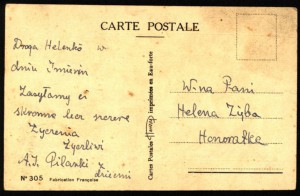 CARTE POSTALE
Droga Helenko w
dniu Imienin
Zasyłamy ci
skromne lecz szczere
Życzenia
Życzliwi
A.J. Pilarski z
dziećmi
Nº 305 Fabrication Française
Cartes Postales imprimées en Eau-forte
W.na Pani
Helena Zyba
Honoratka